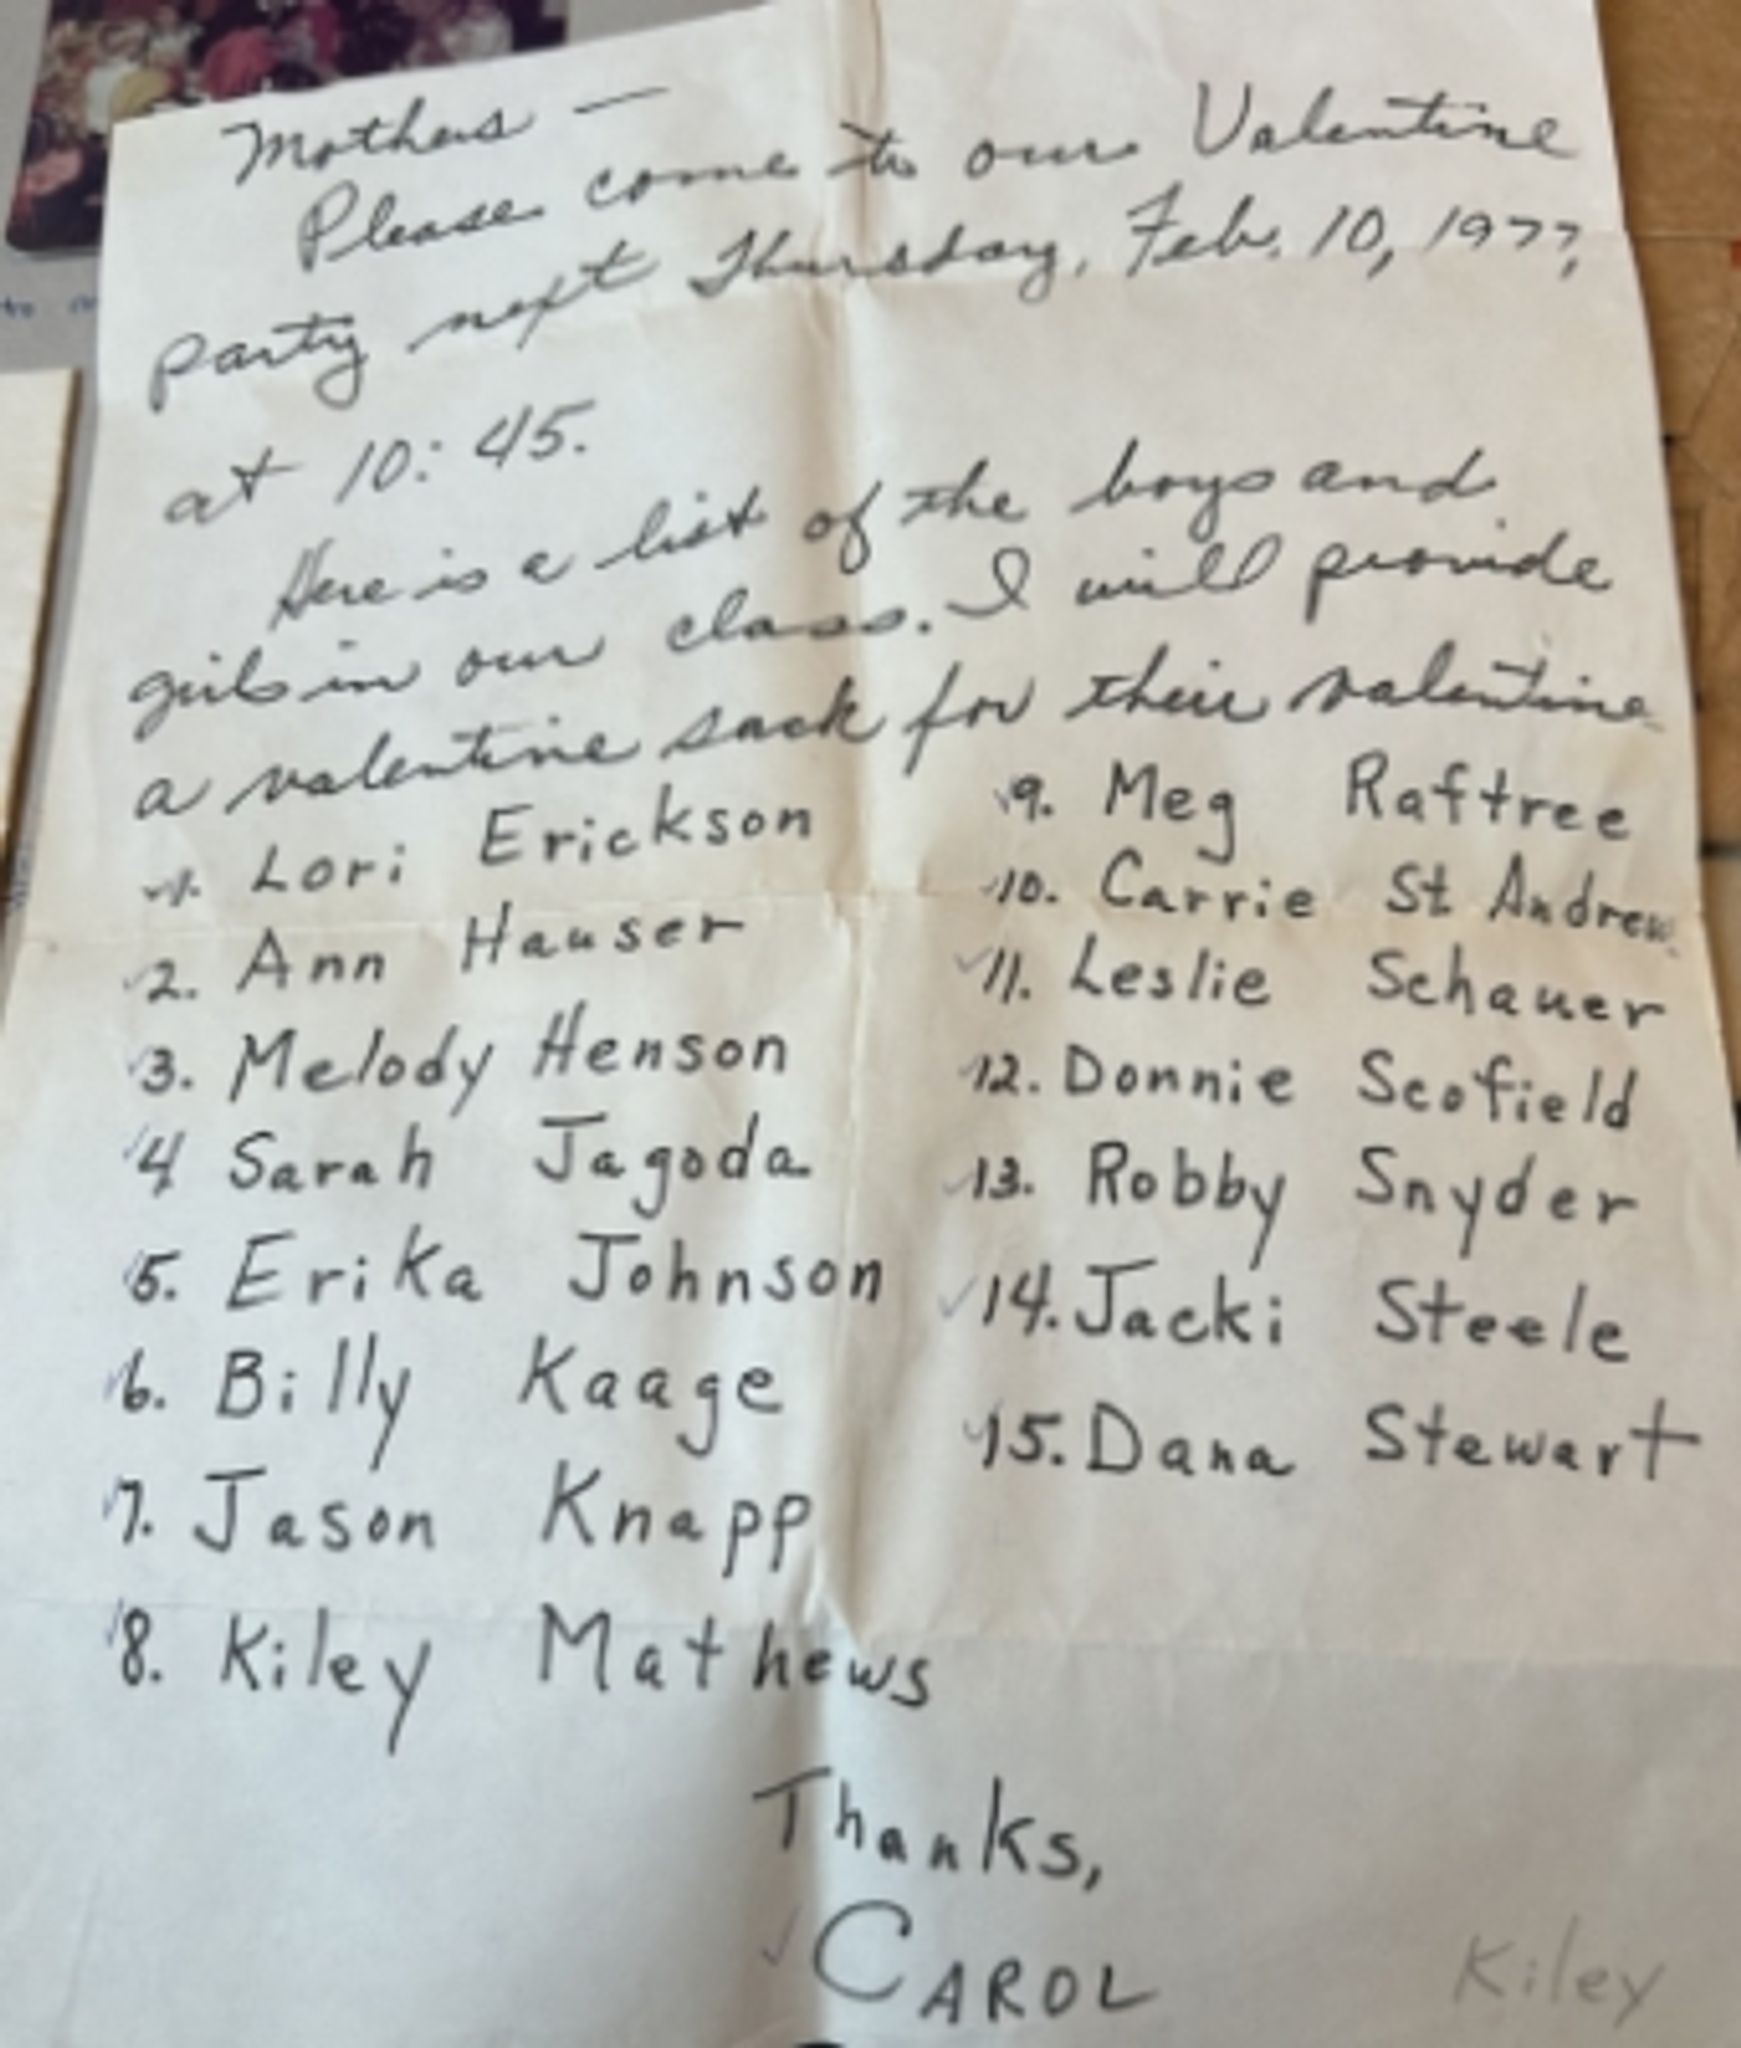 Mothers —
Please come to our Valentine
party next Thursday, Feb. 10, 1977,
at 10:45.
Here is a list of the boys and
girls in our class. I will provide
a valentine sack for their valentine
1. Lori Erickson
2. Ann Hauser
3. Melody Henson
4 Sarah Jagoda
5. Erika Johnson
6. Billy Kaage
7. Jason Knapp
8. Kiley Mathews
9. Meg Raftree
10. Carrie St Andrew
11. Leslie Schauer
12. Donnie Scofield
13. Robby Snyder
14. Jacki Steele
15. Dana Stewart
Thanks,
CAROL
Kiley